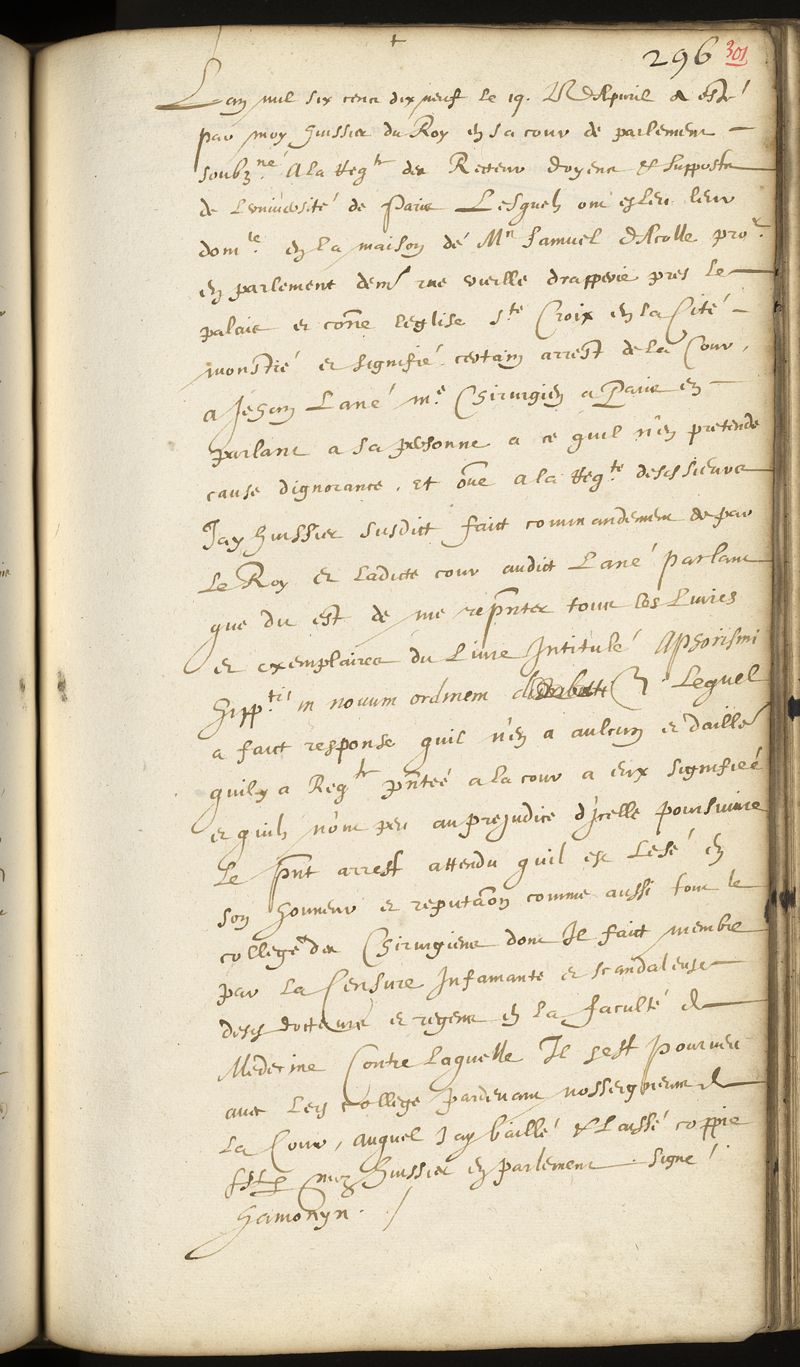 +
296 301
Lan mil six cens dix neuf le 19. d'Apvril a esté
par moy huissier du Roy en sa cour de parlement
soubzne. A la Reqte des Recteur doyens & supposts
de Luniversité de Paris Lesquels ont esleu leur
domle. en la maison de Mre Samuel dAcolle pror.
en parlement demt rue vieille drapperie pres le
palais et contre leglise Ste Croix en la Cité
monstré et signifié certain arrest de la Cour,
a Jehan Lané me Chirurgien a Paris en
parlant a sa personne a ce quil n'en pretende
cause dignorance. Et oultre a la Reqte desds sieurs
Jay huissier susdict faict commandement de par
Le Roy et ladicte cour audict Lané parlant
que du est de me repnter tous les Livres
et exemplaires du Livre Intitulé Aphorismi
hippti in novum ordinem Lequel
a faict response quil n'en a aulcun et dailleˢ
quil y a Reqte pntée a la cour a eux signifiée
et quils n'ont peu au prejudice d'icelle poursuivre
Le pnt arrest attendu quil est Lesé en
son honneur et reputaon comme aussi tout le
college des Chirurgiens dont Il faict membre
par la Censure Infamante et scandaleuse
desds docteurs et regens en la faculté de
Medecine Contre laquelle Il sest pourveu
avec Leds college pardevant nosseigneurs de
La Cour, auquel Jay baillé & Laissé coppie
huissier en parlement. signé
hamonyn.